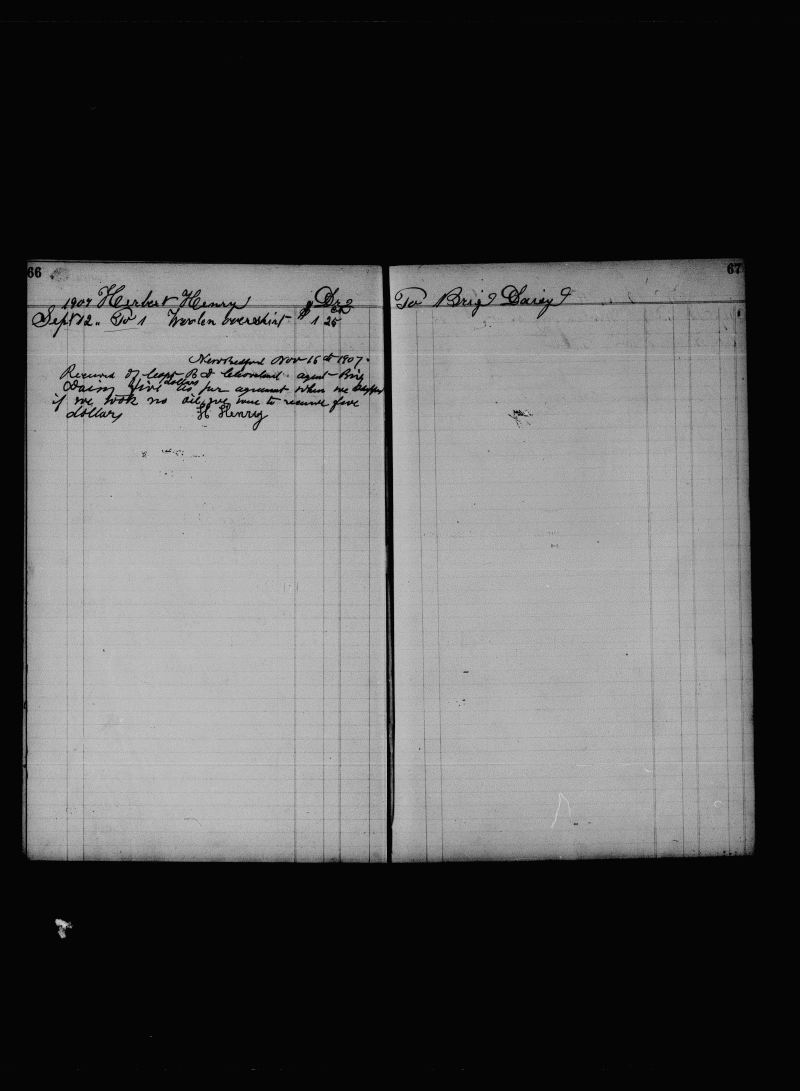 66
1907 Herbert Henry Dr
$ cts
Sept 12 " To 1 Woolen overshirt $ 1 25
New Bedford Nov 16th 1907.
Received of Capt B D Cleveland agent Brig
Daisy five dollars as per agreement when we shipped
if we took no oil, we were to receive five
dollars H Henry
67
To Brig Daisy